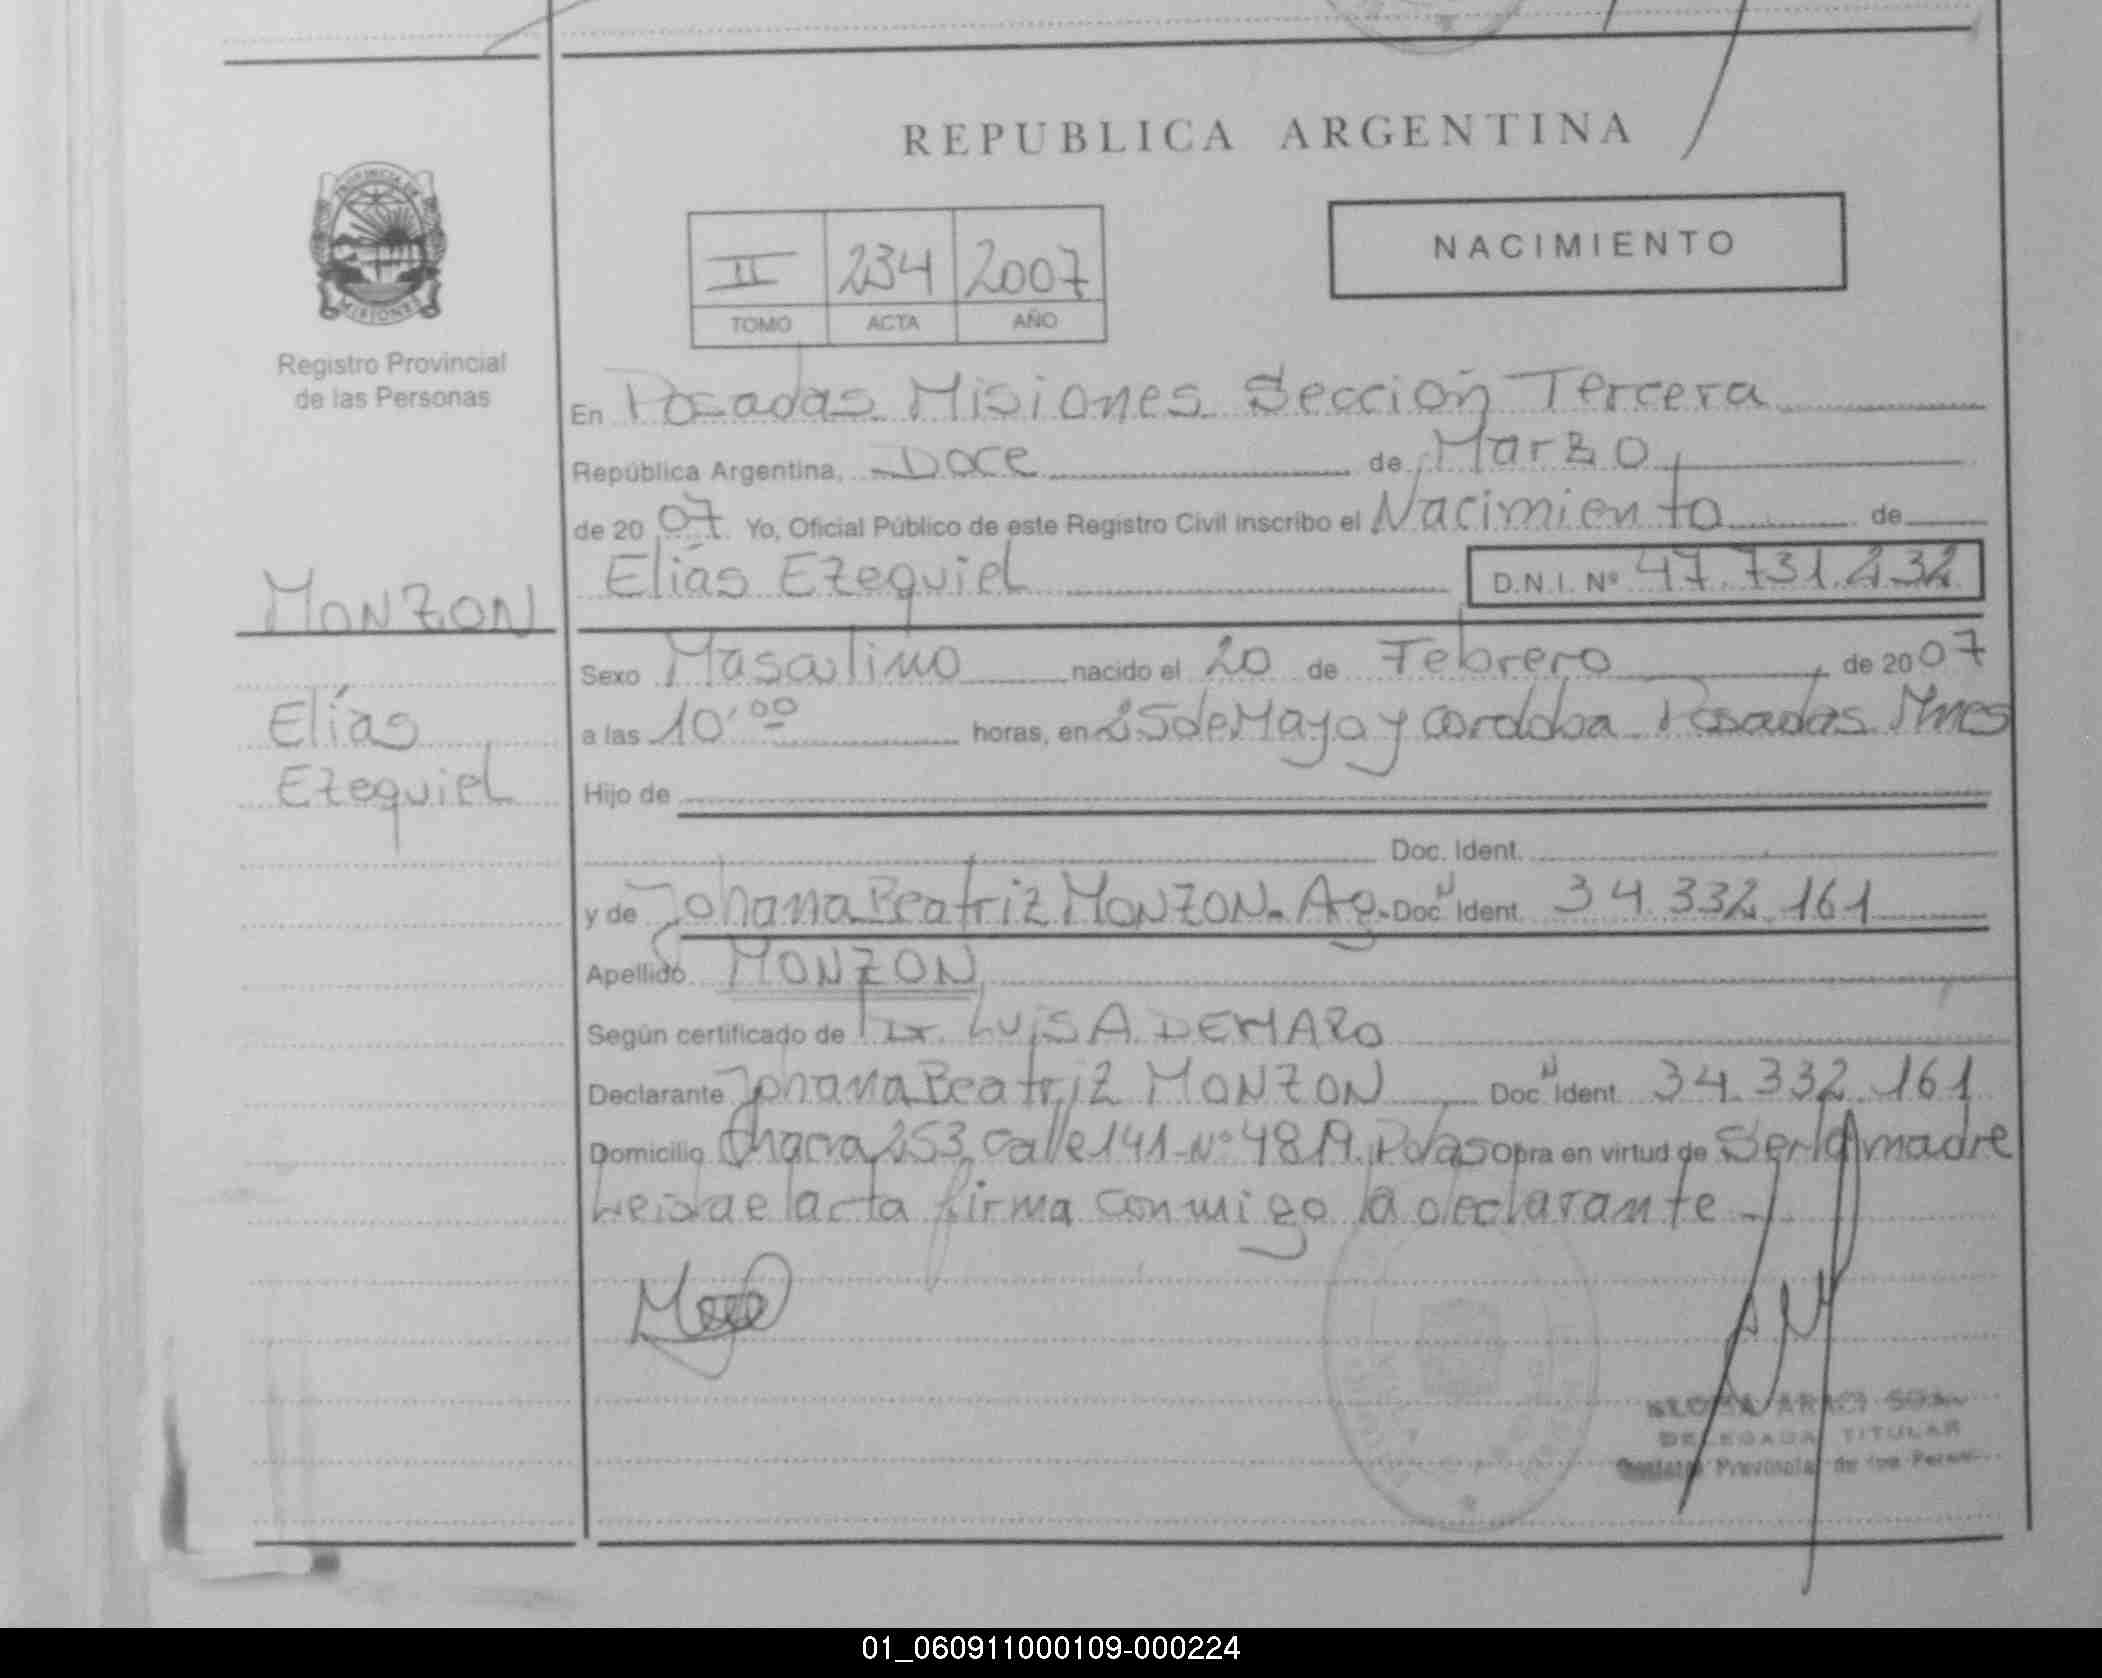 REPUBLICA ARGENTINA
NACIMIENTO
II 234 2007
TOMO ACTA AÑO
Registro Provincial
de las Personas
En Posadas Misiones Sección Tercera
República Argentina, Doce de Marzo
de 2007 Yo, Oficial Público de este Registro Civil inscribo el Nacimiento de
Elías Ezequiel D.N.I. Nº 47.731.232
MONZON
Elías
Ezequiel
Sexo Masculino nacido el 20 de Febrero de 2007
a las 10'00 horas, en 25 de Mayo y Cordoba Posadas Mnes
Hijo de
Doc. Ident.
y de Johana Beatriz MONZON. Ag. Doc N Ident. 34.332.161
Apellido MONZON
Según certificado de Dr. LUIS A. DEMARO
Declarante Johana Beatriz MONZON Doc N Ident. 34.332.161
Domicilio Chacra 253 Calle 141 Nº 4819 Pdas obra en virtud de Ser la madre
Leida el acta firma conmigo la declarante
ARACI
DELEGADA TITULAR
Provincial de las
01_060911000109-000224